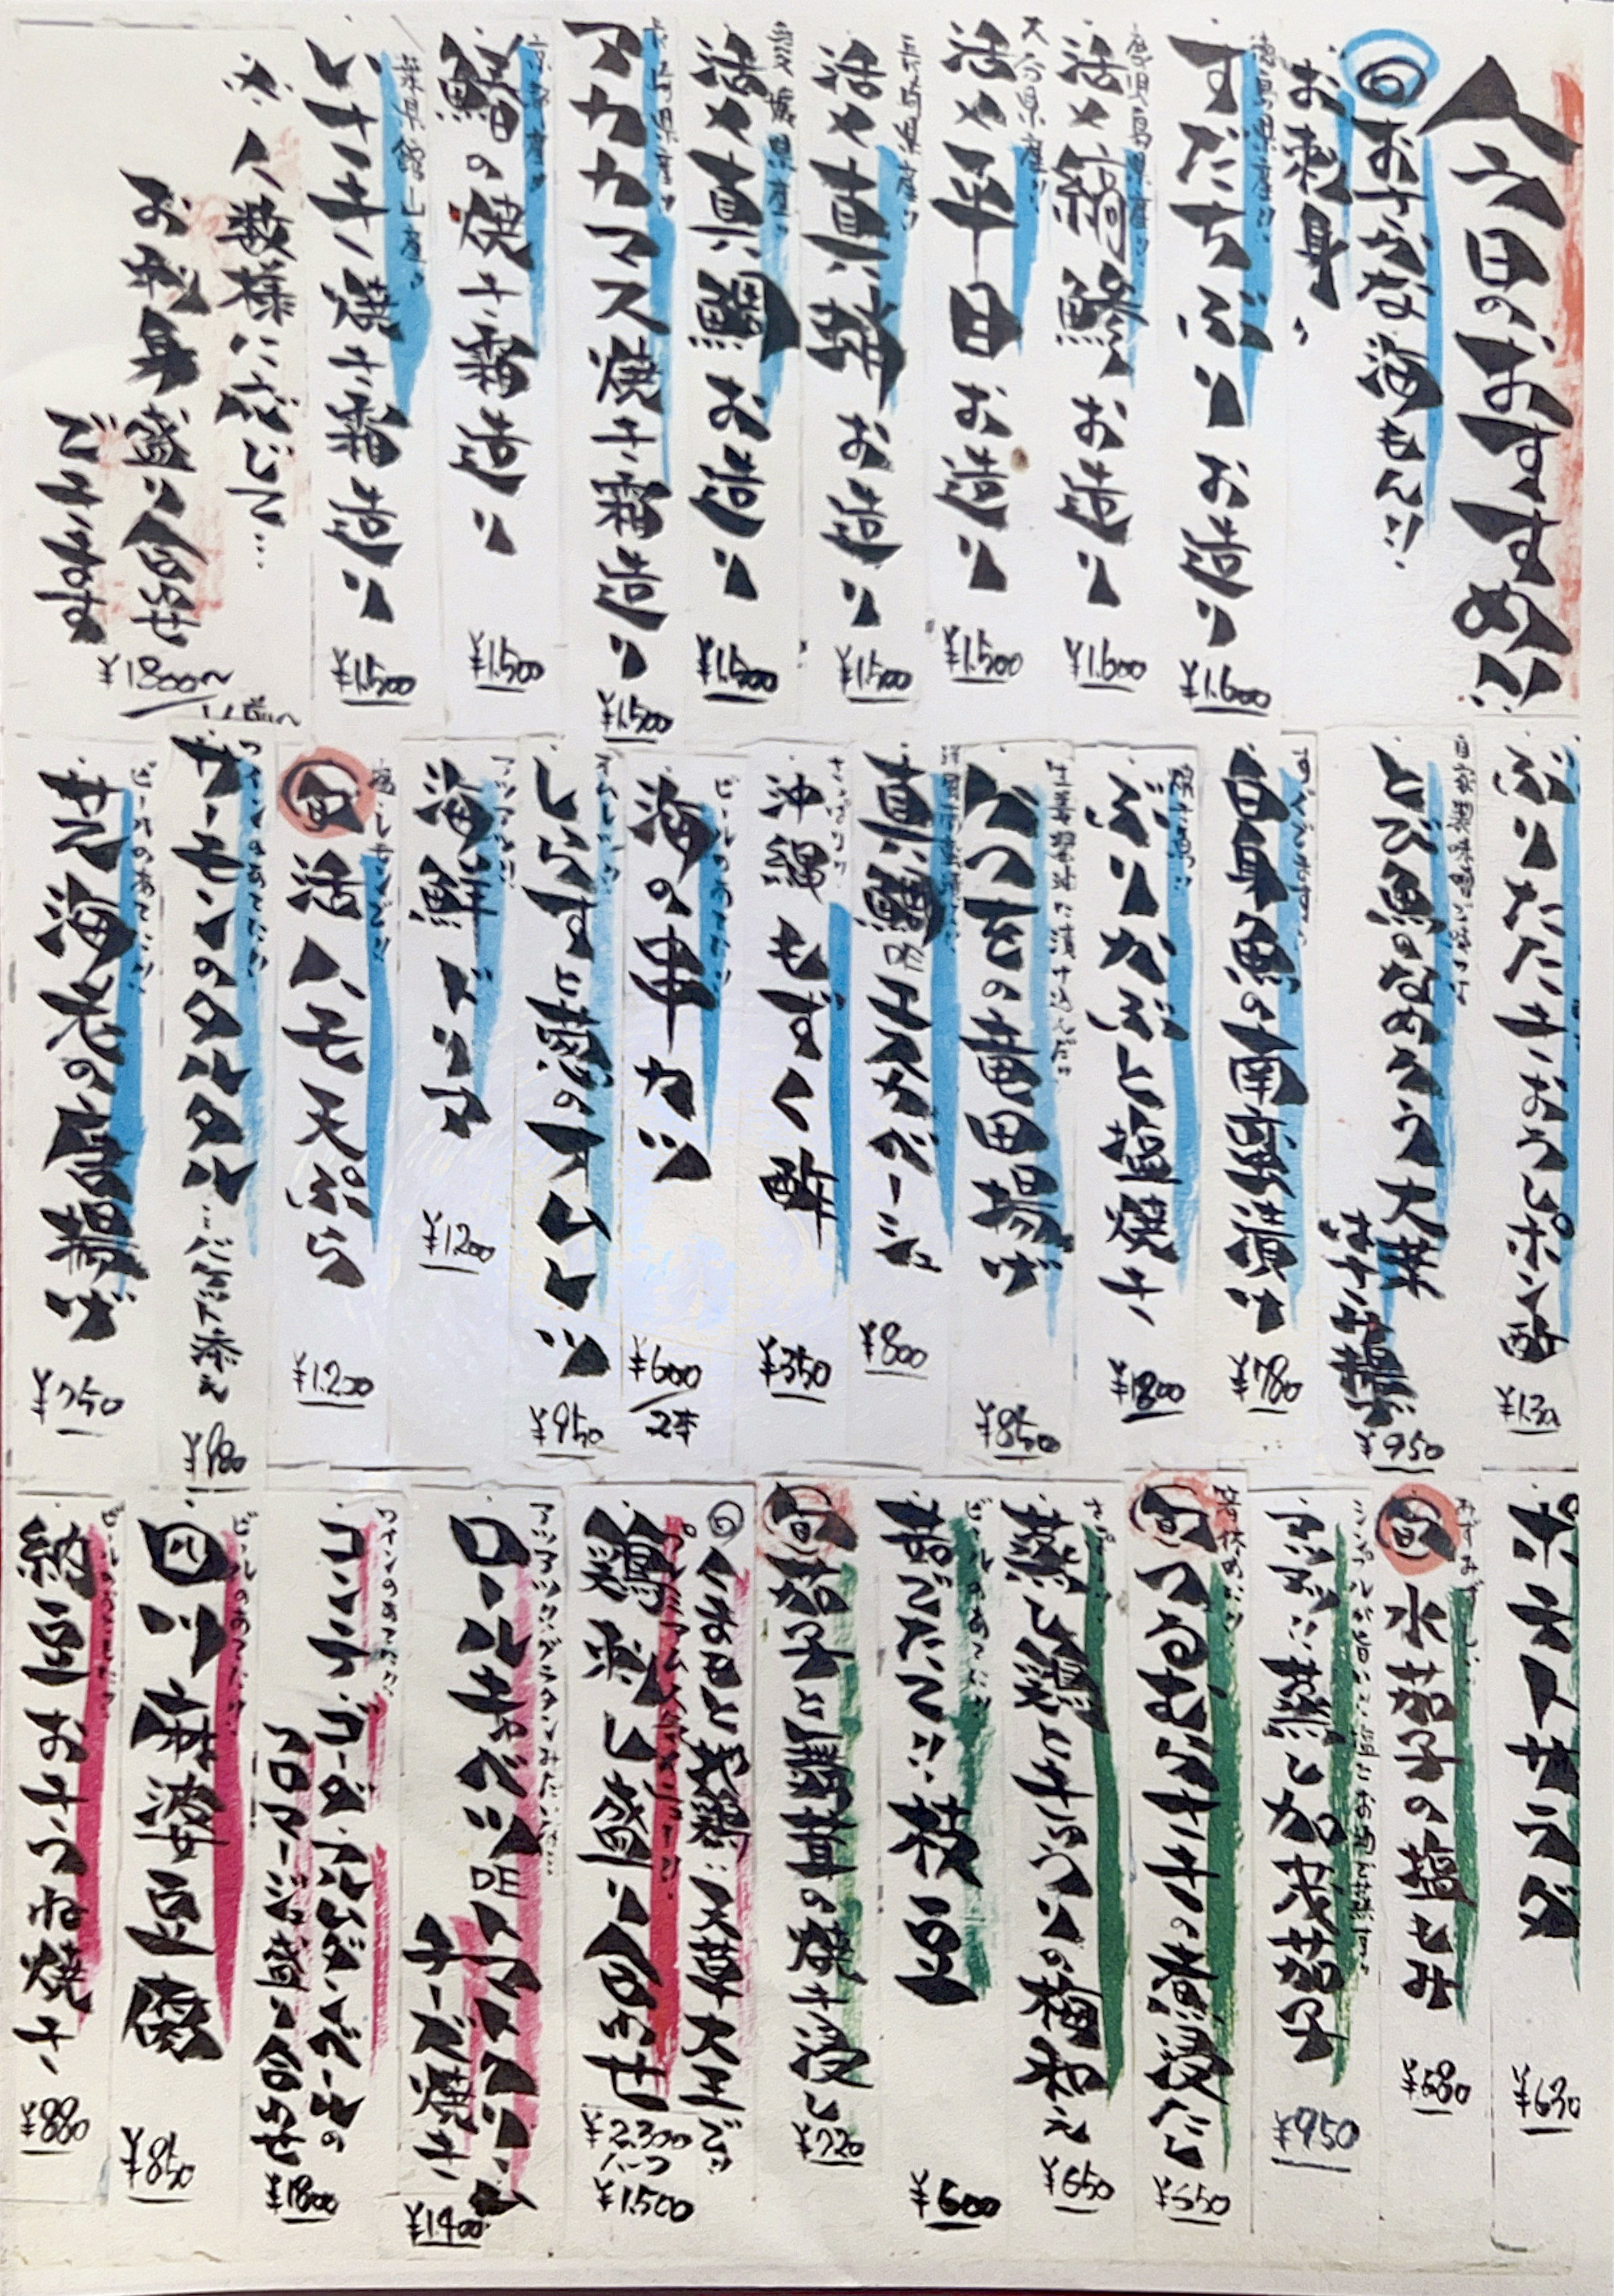 今日のおすすめ!!
旬おさかな海もん!!
お刺身
徳島県産!!
すだちぶり お造り ¥1.600
鹿児島県産!!
活〆縞鯵 お造り ¥1.600
大分県産!!
活〆平目 お造り ¥1.500
長崎県産!!
活〆真鯵 お造り ¥1.500
愛媛県産!!
活〆真鯛 お造り ¥1.500
長崎県産!!
アカカマス焼き霜造り ¥1.500
京都産!!
鰆の焼き霜造り ¥1.500
千葉県館山産!!
焼き霜造り ¥1.500
人数様に応じて…
お刺身盛り合せ
ございます
¥1800〜
ぶりたたき おろしポン酢
自家製味噌
とび魚のなめろう 大葉
はさみ揚 ¥950
すぐ出ます!!
白身魚の南蛮漬け ¥780
ぶりかぶと塩焼き ¥1800
生姜醤油に漬け込んだ
かつをの竜田揚げ ¥850
真鯛のエスカベーシュ ¥800
さっぱり!!
沖縄もずく酢 ¥350
ビールのあてに!!
海の串カツ ¥600/2本
しらすと葱のオムレツ ¥950
アツアツ!!
海鮮ドリア ¥1200
塩・レモンで!!
旬 活ハモ天ぷら ¥1.200
ワインのあてに!!
サーモンのタルタル…バゲット添え ¥980
ビールのあてに!!
芝海老の唐揚げ ¥750
ポテトサラダ ¥630
旬 水茄子の塩もみ ¥680
シンプルが旨い!!
アツアツ!!蒸し加茂茄子 ¥950
箸休めに!!
旬 つるむらさきの煮浸し ¥550
さっぱり!!
蒸し鶏ときゅうりの梅和え ¥650
ビールのあてに!!
茹でたて!! 枝豆 ¥600
旬 茄子と舞茸の焼き浸し ¥720
くまもと地鶏:天草大王で!!
鶏刺し盛り合わせ ¥2.300
ハーフ ¥1.500
アツアツ!!グラタンみたいな…
ロールキャベツのトマトクリーム
チーズ焼き ¥1.400
ワインのあてに!!
コンテ・ゴーダ・カムダンベールの
フロマージュ盛り合わせ ¥1800
ビールのあてに!!
四川麻婆豆腐 ¥850
ビールのあてに!!
納豆おきつね焼き ¥880